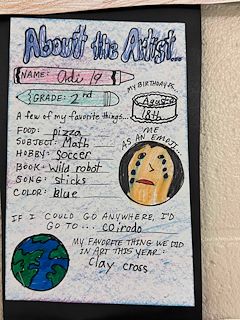 About the Artist...
NAME: Odi
MY BIRTHDAY IS...
GRADE: 2nd
18th
A few of my favorite things...
ME
AS AN EMOJI
FOOD: pizza
SUBJECT: Math
HOBBY: Soccer
BOOK: Wild robot
SONG: sticks
COLOR: Blue
IF I COULD GO ANYWHERE, I'D
GO TO...
MY FAVORITE THING WE DID
IN ART THIS YEAR:
Clay cross